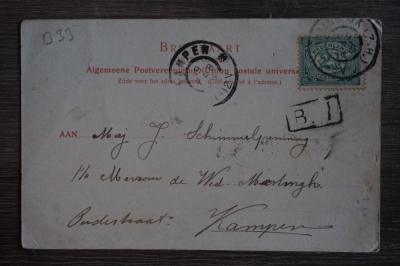 B33
BRIEFKAART
Algemeene Postvereeniging. Union postale universelle
Zijde voor het adres bestemd. (Côté réservé à l'adresse.)
KAMPEN
B. I
AAN Mej. J. Schimmelpenning
p/a Mevrouw de Wed.
Oudestraat
Kampen